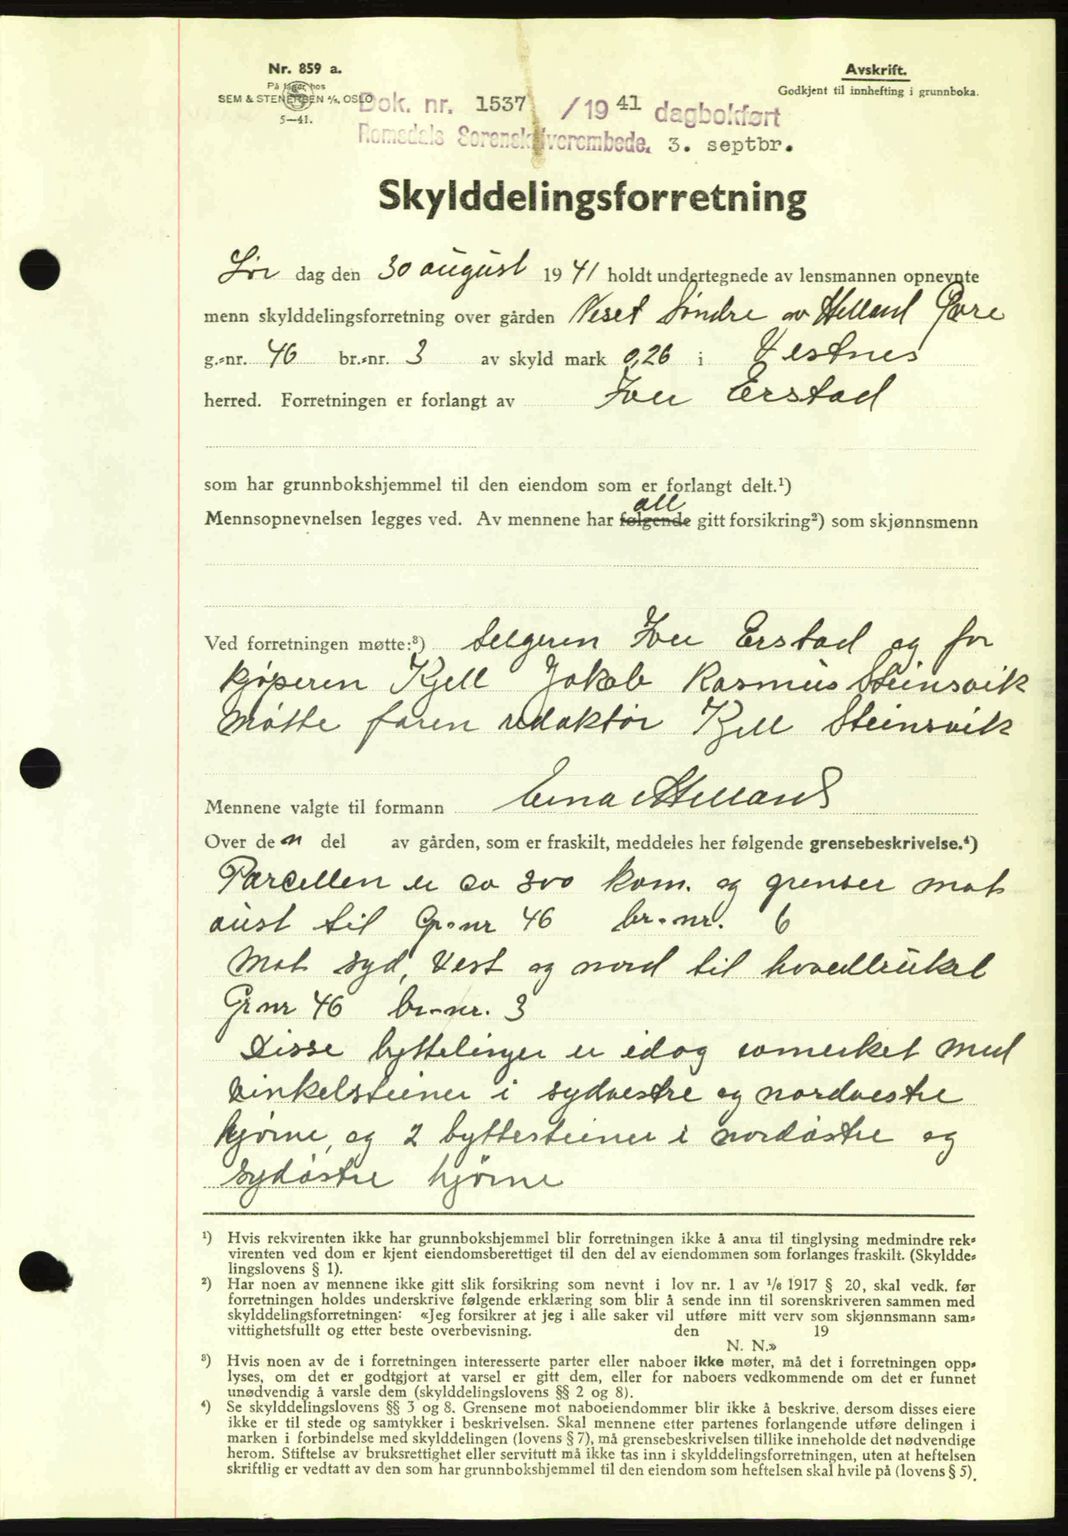 Nr. 859 a.
På lager hos
SEM & STENERSEN A/S, OSLO
5—41.
Avskrift.
Godkjent til innhefting i grunnboka.
Dok. nr. 1537 / 19 41 dagbokført
Romsdals Sorenskriverembede. 3. septbr.
Skylddelingsforretning
Lør dag den 30 august 19 41 holdt undertegnede av lensmannen opnevnte
menn skylddelingsforretning over gården Neset Søndre av Helland Øvre
g.-nr. 46 br.-nr. 3 av skyld mark 0,26 i Vestnes
herred. Forretningen er forlangt av Iver Erstad
som har grunnbokshjemmel til den eiendom som er forlangt delt.¹)
all
Mennsopnevnelsen legges ved. Av mennene har følgende gitt forsikring²) som skjønnsmenn
Ved forretningen møtte:³) Selgeren Iver Erstad og for
kjøperen Kjell Jakob Rasmus Steinsvik
møtte faren redaktør Kjell Steinsvik
Mennene valgte til formann Einar Helland
Over de n del av gården, som er fraskilt, meddeles her følgende grensebeskrivelse.⁴)
Parcellen er ca 300 kvm. og grenser mot
aust til Gr.nr 46 br.nr. 6
Mot syd, Vest og nord til hovedbruket
Gr.nr 46 br.nr. 3
Disse byttelinjer er idag avmerket med
vinkelsteiner i sydvestre og nordvestre
hjørne, og 2 byttesteiner i nordøstre og
sydøstre hjørne
¹) Hvis rekvirenten ikke har grunnbokshjemmel blir forretningen ikke å anta til tinglysing medmindre rek-
virenten ved dom er kjent eiendomsberettiget til den del av eiendommen som forlanges fraskilt. (Skyldde-
lingslovens § 1).
²) Har noen av mennene ikke gitt slik forsikring som nevnt i lov nr. 1 av 1/6 1917 § 20, skal vedk. før
forretningen holdes underskrive følgende erklæring som blir å sende inn til sorenskriveren sammen med
skylddelingsforretningen: «Jeg forsikrer at jeg i alle saker vil utføre mitt verv som skjønnsmann sam-
vittighetsfullt og etter beste overbevisning. den 19
N. N.»
³) Hvis noen av de i forretningen interesserte parter eller naboer ikke møter, må det i forretningen opp-
lyses, om det er godtgjort at varsel er gitt dem, eller for naboers vedkommende om det er funnet
unødvendig å varsle dem (skylddelingslovens §§ 2 og 8).
⁴) Se skylddelingslovens §§ 3 og 8. Grensene mot naboeiendommer blir ikke å beskrive, dersom disses eiere
ikke er til stede og samtykker i beskrivelsen. Skal mennene etter partenes forlangende utføre delingen i
marken i forbindelse med skylddelingen (lovens § 7), må grensebeskrivelsen tillike inneholde det nødvendige
herom. Stiftelse av bruksrettighet eller servitutt må ikke tas inn i skylddelingsforretningen, uten at heftelsen
skriftlig er vedtatt av den som har grunnbokshjemmel til den eiendom som heftelsen skal hvile på (lovens § 5).